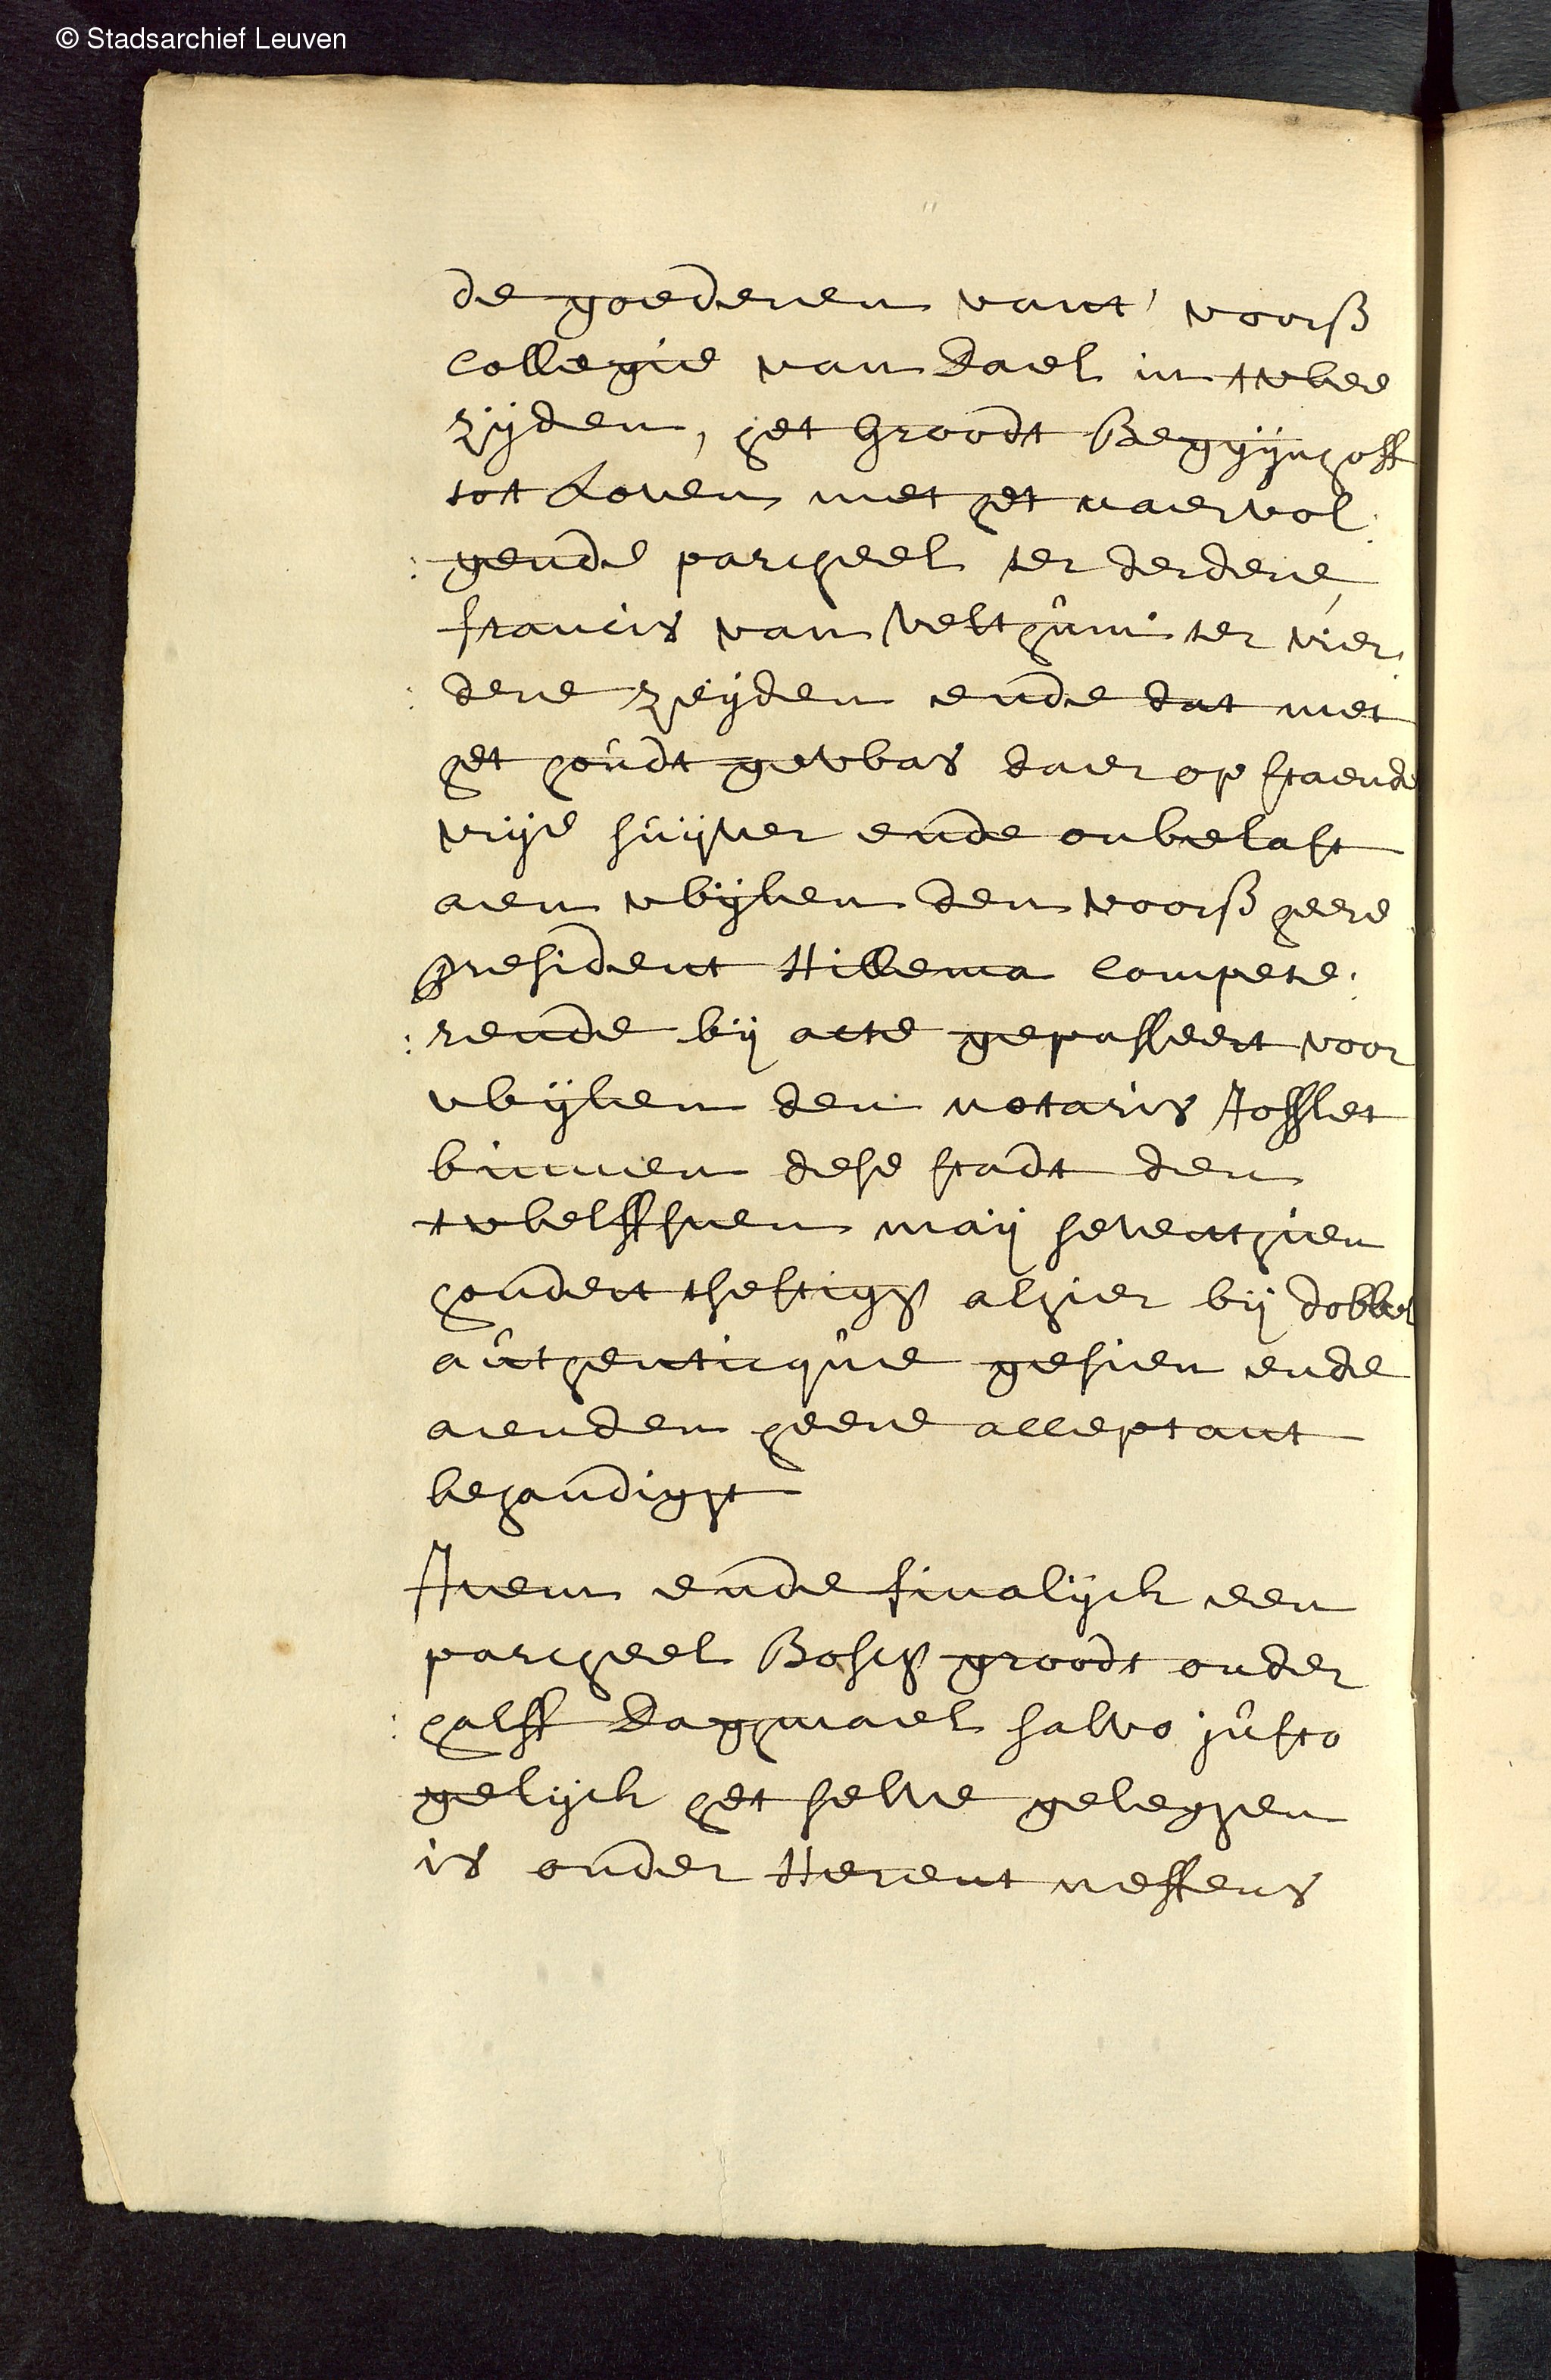 © Stadsarchief Leuven
de goederen vant voors
Collegie van Dael in twee
zyden, het Groodt Begijnhoff
tot Loven met het naervol
: gende parcheel ter derdere
francis van Velthum ter vier
: dere zeyden ende dat met
het houdt gewas daer op staende
vrije suijver ende onbelast
aen wijlen den voors heere
president Hillema Compete:
: rende bij acte gepasseert voor
wijlen den notaris
binnen dese stadt den
twelffsten maij seventhien
hondert tsestigh alhier bij dobbel
authenticque gesien ende
aenden heere acceptant
behandight
Item ende finalijck een
parcheel Bosch groodt onder
: halff Daghmael salvo justo
gelijck het selve geleghen
is onder Herent neffens